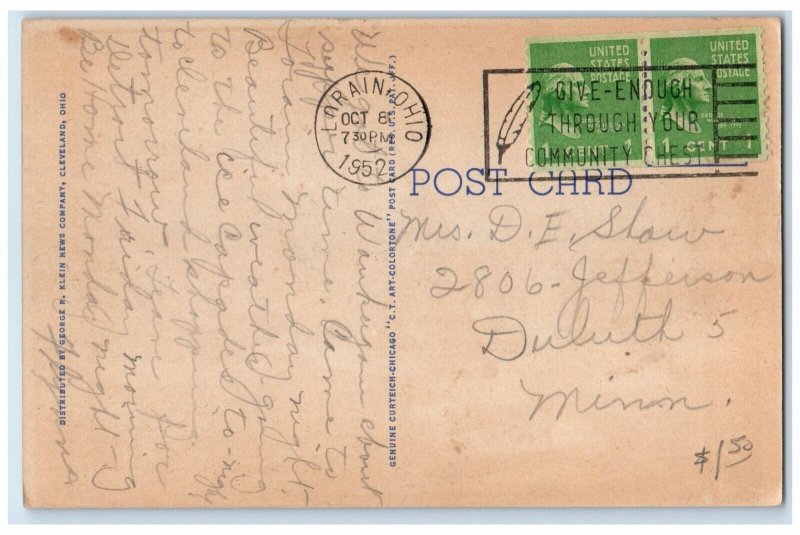 DISTRIBUTED BY GEORGE R. KLEIN NEWS COMPANY, CLEVELAND, OHIO
Waukegan about
supper time. Came to
Lorain Monday night.
Beautiful weather going
to the Ice Capades to-night
to Cleveland shopping
tomorrow. Leave for
Detroit Friday morning
Be Home Monday night
GENUINE CURTEICH-CHICAGO "C.T. ART-COLORTONE" POST CARD (REG. U.S. PAT. OFF.)
LORAIN, OHIO
OCT 8
730 PM
1952
GIVE-ENOUGH
THROUGH YOUR
COMMUNITY CHEST
UNITED
STATES
POSTAGE
1 CENT 1
UNITED
STATES
POSTAGE
1 CENT 1
POST CARD
Mrs. D. E. Shaw
2806-Jefferson
Duluth 5
Minn.
$1.50